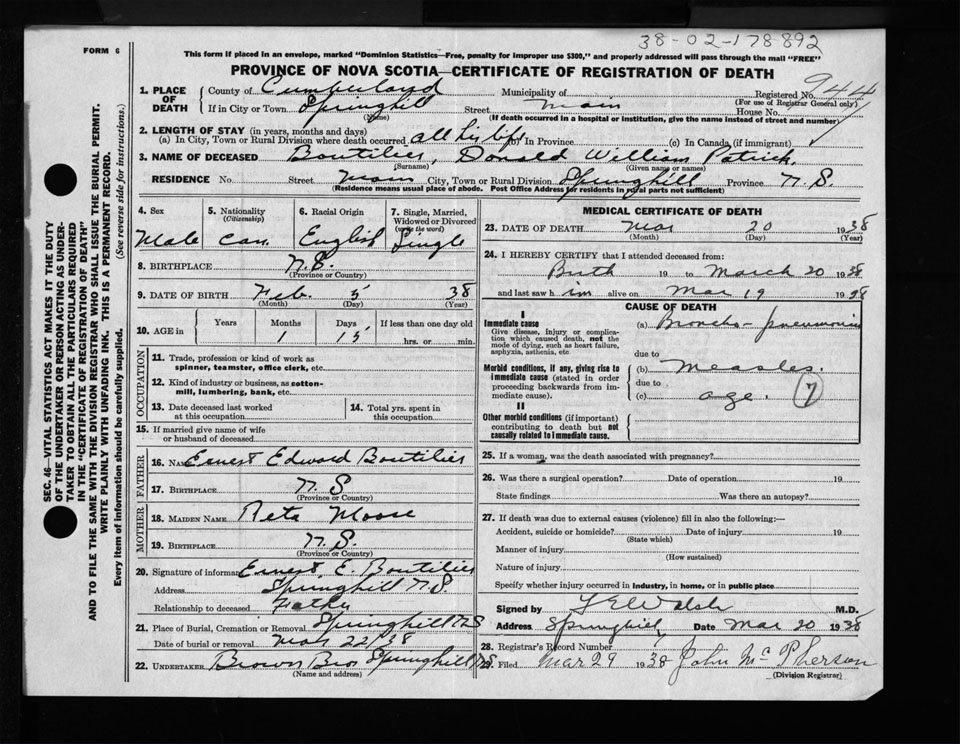 38-02-178892
FORM 6
This form if placed in an envelope, marked "Dominion Statistics—Free, penalty for improper use $300," and properly addressed will pass through the mail "FREE"
PROVINCE OF NOVA SCOTIA—CERTIFICATE OF REGISTRATION OF DEATH
944
1. PLACE OF DEATH County of Cumberland Municipality of Registered No.
(For use of Registrar General only)
If in City or Town Springhill Street Main House No.
(Name) (If death occurred in a hospital or institution, give the name instead of street and number)
2. LENGTH OF STAY (in years, months and days)
(a) In City, Town or Rural Division where death occurred all his life (b) In Province (c) In Canada (if immigrant)
3. NAME OF DECEASED Boutilier, Donald William Patrick.
(Surname) (Given name or names)
RESIDENCE No. Street Main City, Town or Rural Division Springhill Province N.S.
(Residence means usual place of abode. Post Office Address for residents in rural parts not sufficient)
4. Sex Male
5. Nationality (Citizenship) Can.
6. Racial Origin English
7. Single, Married, Widowed or Divorced (write the word) Single
8. BIRTHPLACE N.S.
(Province or Country)
9. DATE OF BIRTH Feb. 5 38
(Month) (Day) (Year)
10. AGE in Years Months 1 Days 15 If less than one day old
hrs. or min.
OCCUPATION
11. Trade, profession or kind of work as spinner, teamster, office clerk, etc.
12. Kind of industry or business, as cotton-mill, lumbering, bank, etc.
13. Date deceased last worked at this occupation
14. Total yrs. spent in this occupation
15. If married give name of wife or husband of deceased
FATHER
16. Name Ernest Edward Boutilier
17. BIRTHPLACE N.S
(Province or Country)
MOTHER
18. MAIDEN NAME Reta Moore
19. BIRTHPLACE N.S.
(Province or Country)
20. Signature of informant Ernest E. Boutilier
Address Springhill N.S.
Relationship to deceased Father
21. Place of Burial, Cremation or Removal Springhill NS
Date of burial or removal Mar 22/38
22. UNDERTAKER Brown Bros Springhill NS
(Name and address)
MEDICAL CERTIFICATE OF DEATH
23. DATE OF DEATH Mar 20 1938
(Month) (Day) (Year)
24. I HEREBY CERTIFY that I attended deceased from:
Birth 19 to March 20 1938
and last saw him alive on Mar 19 1938
CAUSE OF DEATH
I
Immediate cause
Give disease, injury or complication which caused death, not the mode of dying, such as heart failure, asphyxia, asthenia, etc
(a) Broncho-pneumonia
due to
Morbid conditions, if any, giving rise to immediate cause (stated in order proceeding backwards from immediate cause).
(b) Measles.
due to
(c) age. 7
II
Other morbid conditions (if important) contributing to death but not causally related to immediate cause.
25. If a woman, was the death associated with pregnancy?
26. Was there a surgical operation? Date of operation 19
State findings Was there an autopsy?
27. If death was due to external causes (violence) fill in also the following:—
Accident, suicide or homicide? Date of injury 19
(State which)
Manner of injury
(How sustained)
Nature of injury
Specify whether injury occurred in industry, in home, or in public place
Signed by Walsh M.D.
Address Springhill Date Mar 20 1938
28. Registrar's Record Number
29. Filed Mar 29 1938 John McPherson
(Division Registrar)
SEC. 46—VITAL STATISTICS ACT MAKES IT THE DUTY
OF THE UNDERTAKER OR PERSON ACTING AS UNDER-
TAKER TO OBTAIN ALL THE PARTICULARS REQUIRED
IN THE "CERTIFICATE OF REGISTRATION OF DEATH"
AND TO FILE THE SAME WITH THE DIVISION REGISTRAR WHO SHALL ISSUE THE BURIAL PERMIT.
WRITE PLAINLY WITH UNFADING INK. THIS IS A PERMANENT RECORD.
Every item of information should be carefully supplied. (See reverse side for instructions.)